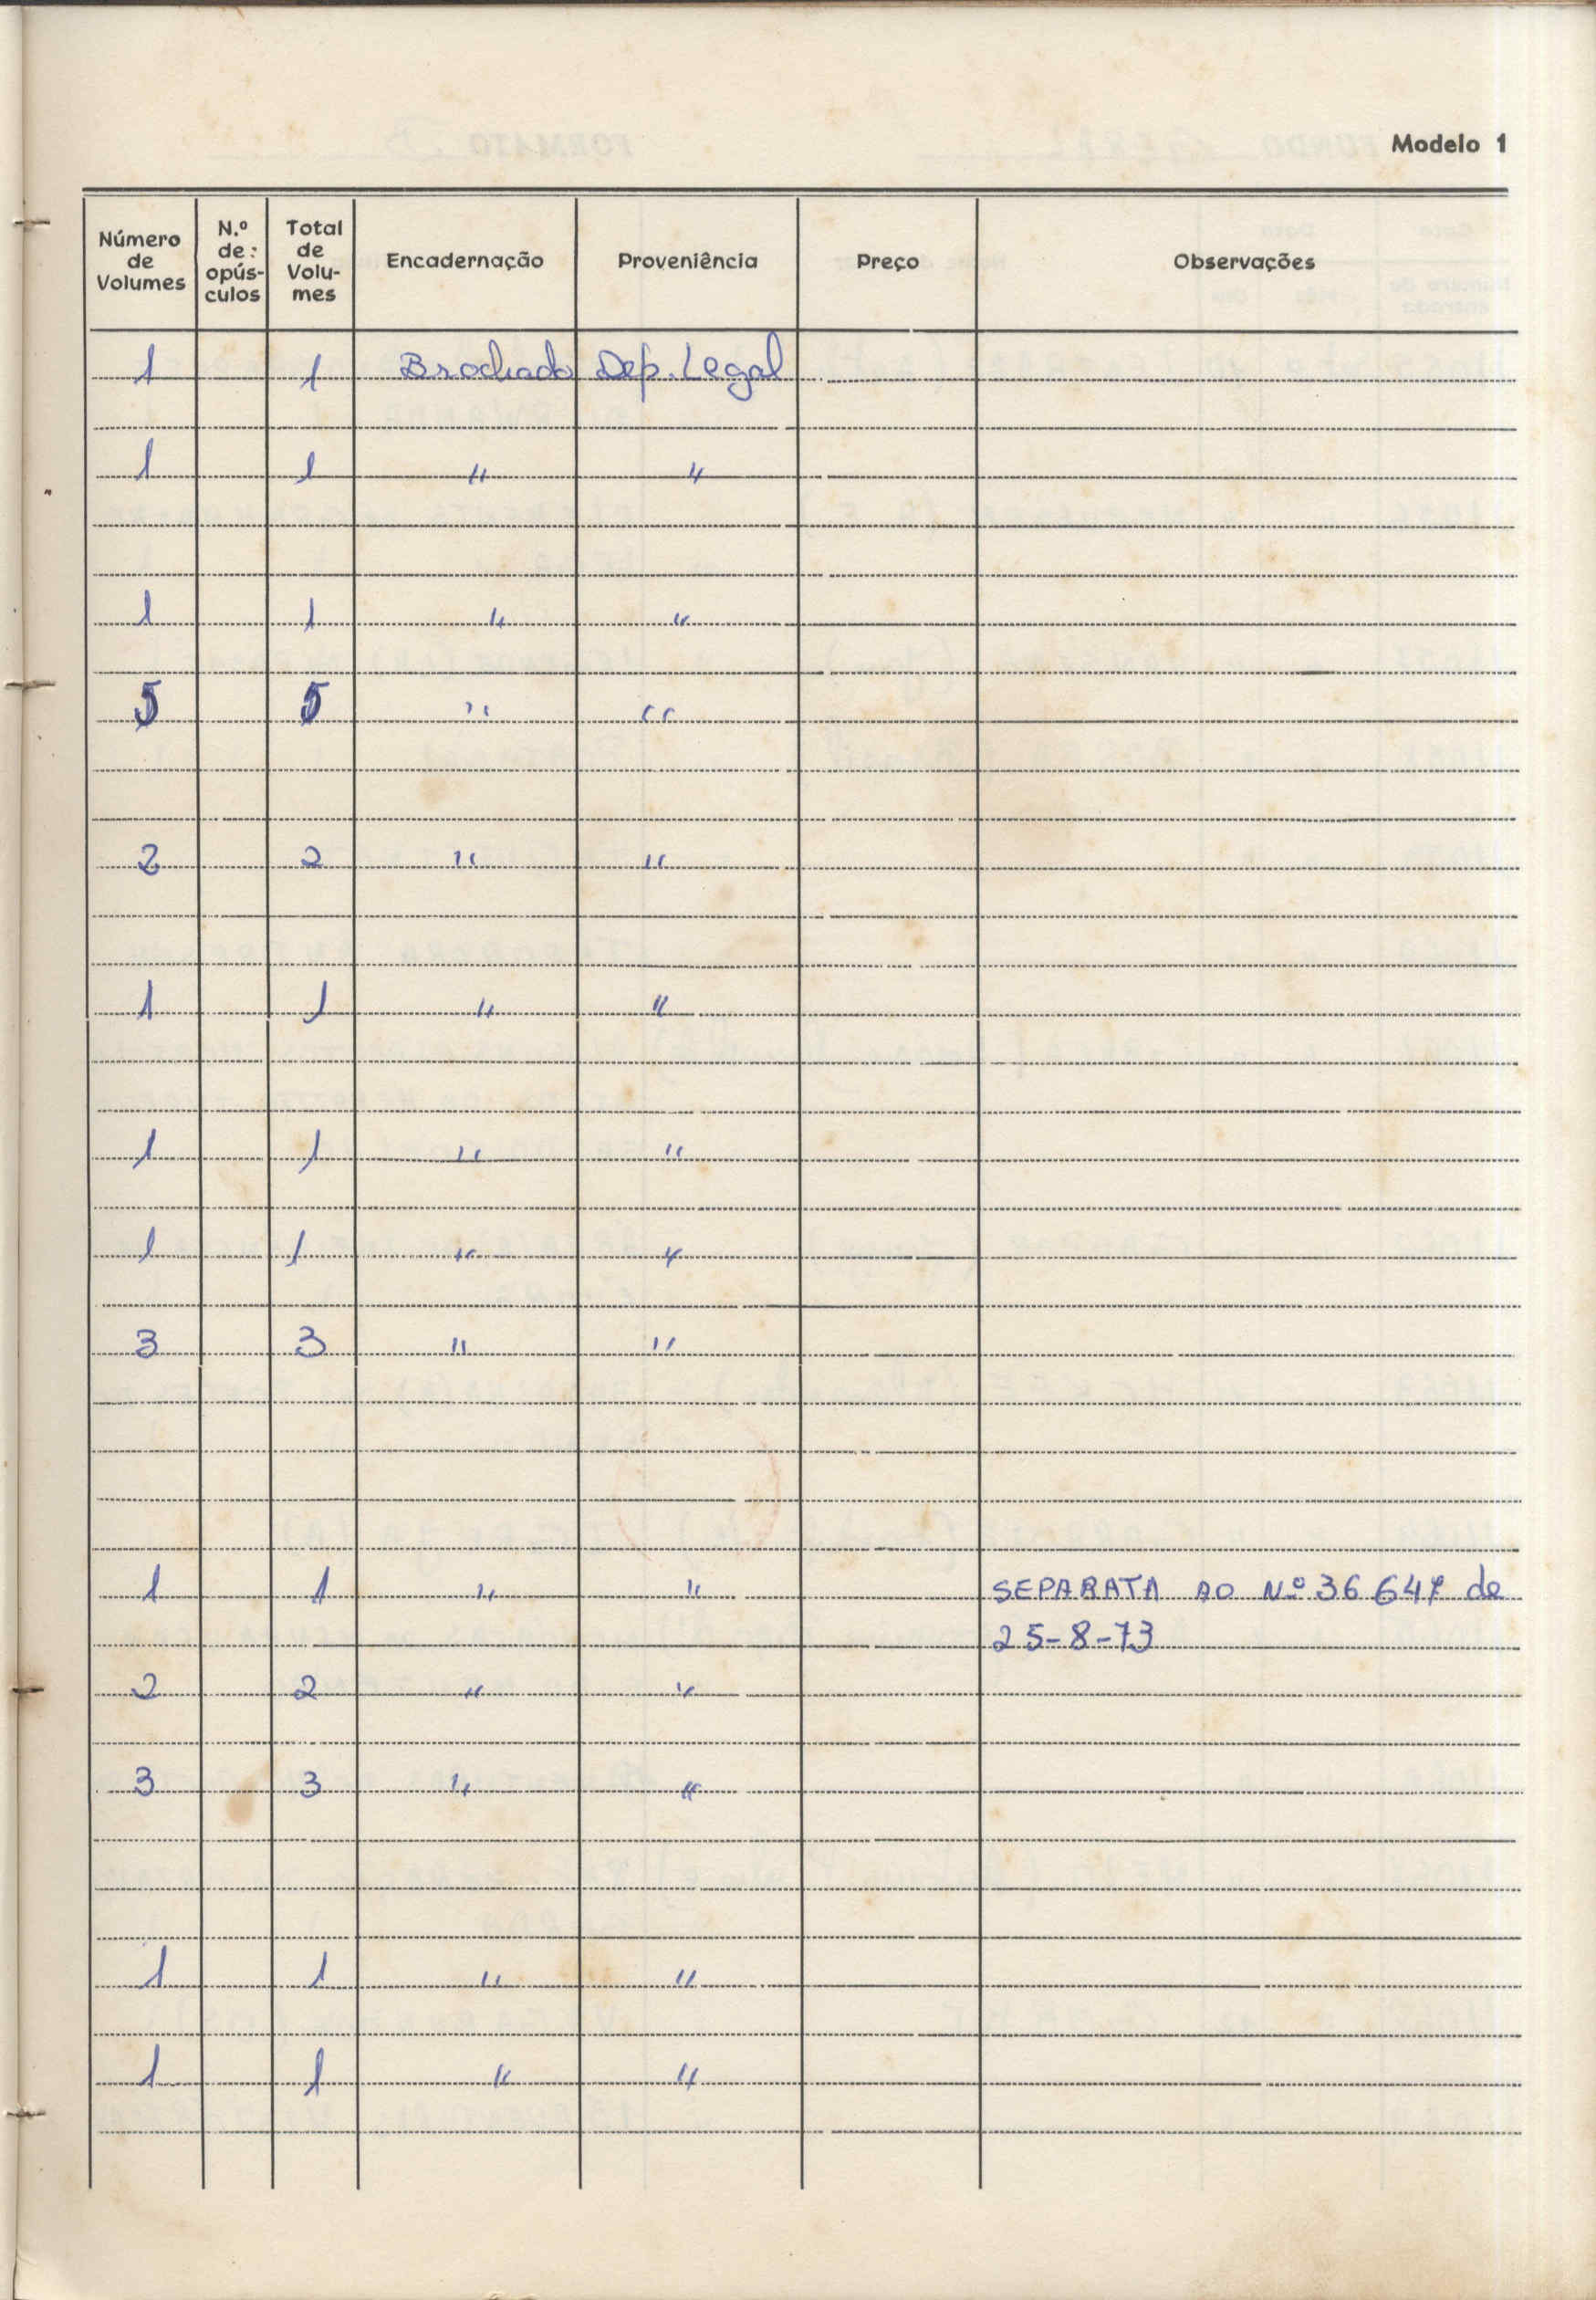 Modelo 1
Número de Volumes | N.º de: opús-culos | Total de Volu-mes | Encadernação | Proveniência | Preço | Observações
1 | | 1 | Brochado | Dep. Legal
1 | | 1 | " | "
1 | | 1 | " | "
5 | | 5 | " | "
2 | | 2 | " | "
1 | | 1 | " | "
1 | | 1 | " | "
1 | | 1 | " | "
3 | | 3 | " | "
1 | | 1 | " | " | | SEPARATA AO Nº 36 647 de
25-8-73
2 | | 2 | " | "
3 | | 3 | " | "
1 | | 1 | " | "
1 | | 1 | " | "